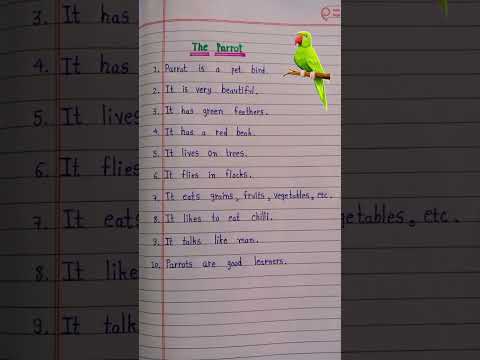 The Parrot
1. Parrot is a pet bird.
2. It is very beautiful.
3. It has green feathers.
4. It has a red beak.
5. It lives on trees.
6. It flies in flocks.
7. It eats grains, fruits, vegetables, etc.
8. It likes to eat chilli.
9. It talks like man.
10. Parrots are good learners.
3. It has
4. It has
5. It lives
6. It flies
7. It eats
8. It like
9. It talk
getables, etc.